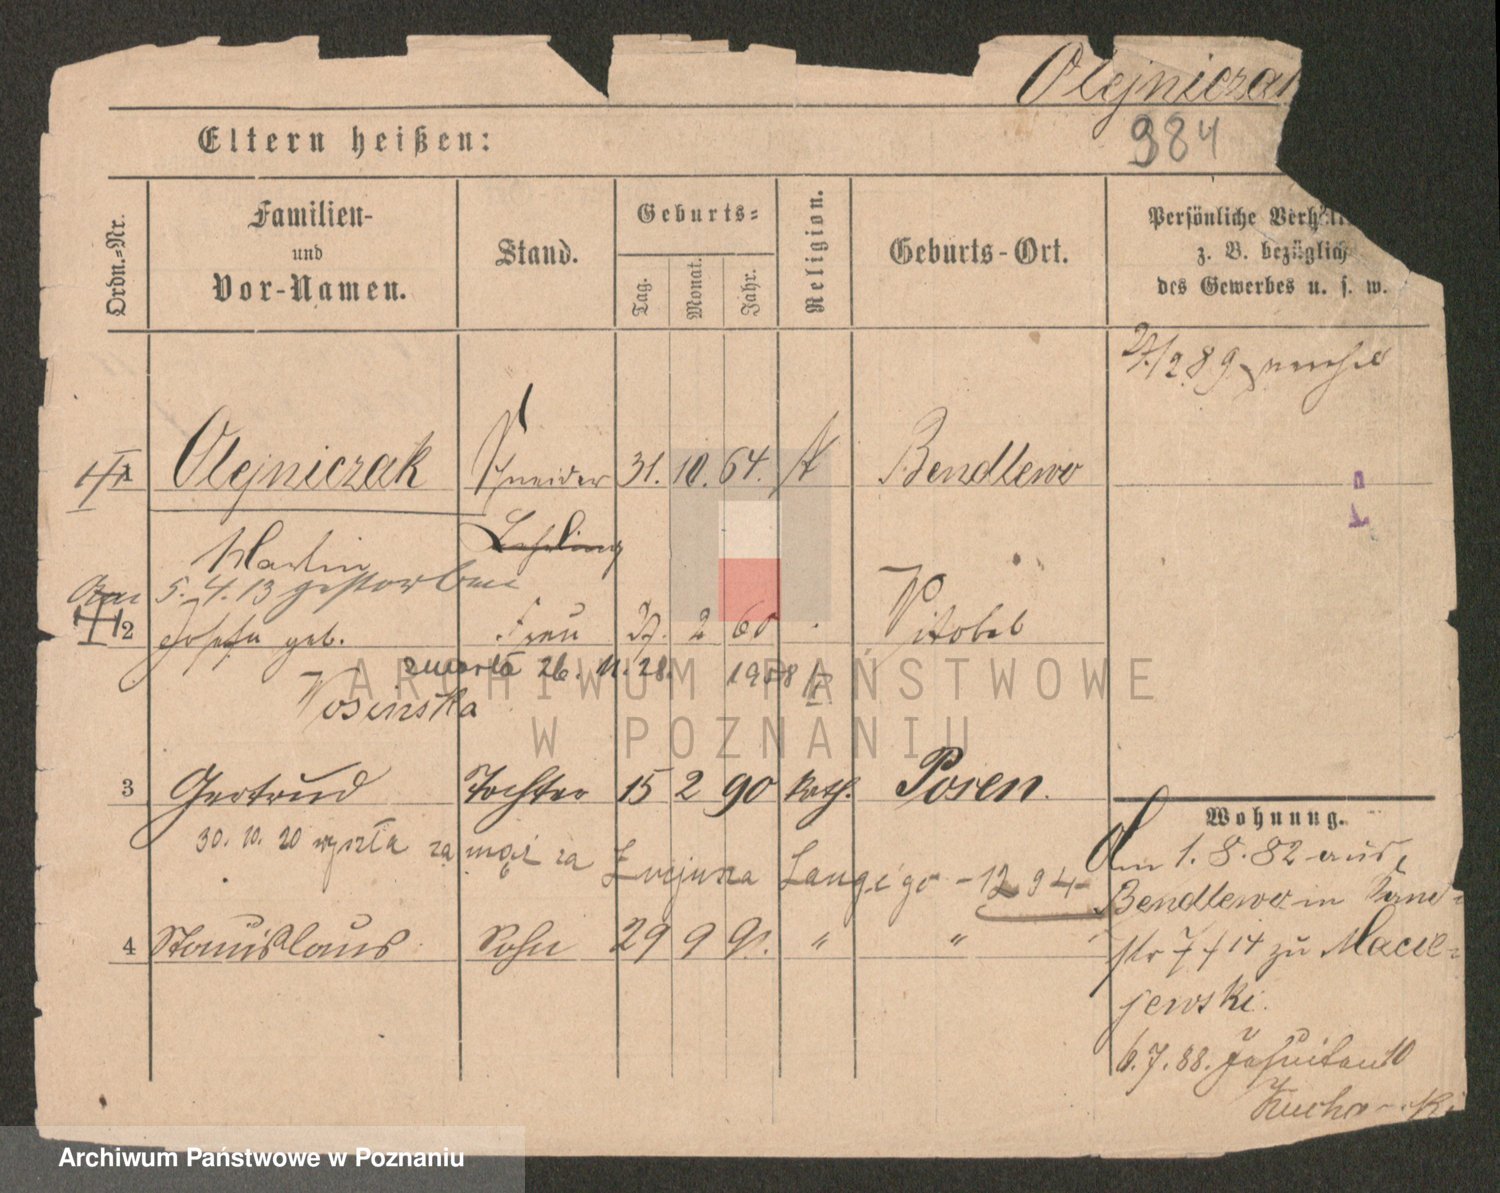 Olejniczak
984
Eltern heißen:
Ordn.-Nr.
Familien-
und
Vor-Namen.
Stand.
Geburts-
Tag.
Monat.
Jahr.
Religion.
Geburts-Ort.
Persönliche Verhält
z. B. bezüglich
des Gewerbes u. s. w.
1 Olejniczak Schneider 31. 10. 64. K Bendlewo
Martin Lehrling
5. 4. 13 gestorben
2 Josefa geb. Frau 27. 2 60
zmarła 26. 11. 28.
3 Gertrud Tochter 15 2 90 kath. Posen.
30. 10. 20 wyszła za mąż za Lucjana Langego - 1294
4 Stanislaus Sohn 29 9 91. " "
Wohnung.
Am 1. 8. 82 aus
Bendlewo in
str 7 f 14 zu Maciejewski.
6. 7. 88. Jesuiten 10
ARCHIWUM PAŃSTWOWE
W POZNANIU
Archiwum Państwowe w Poznaniu